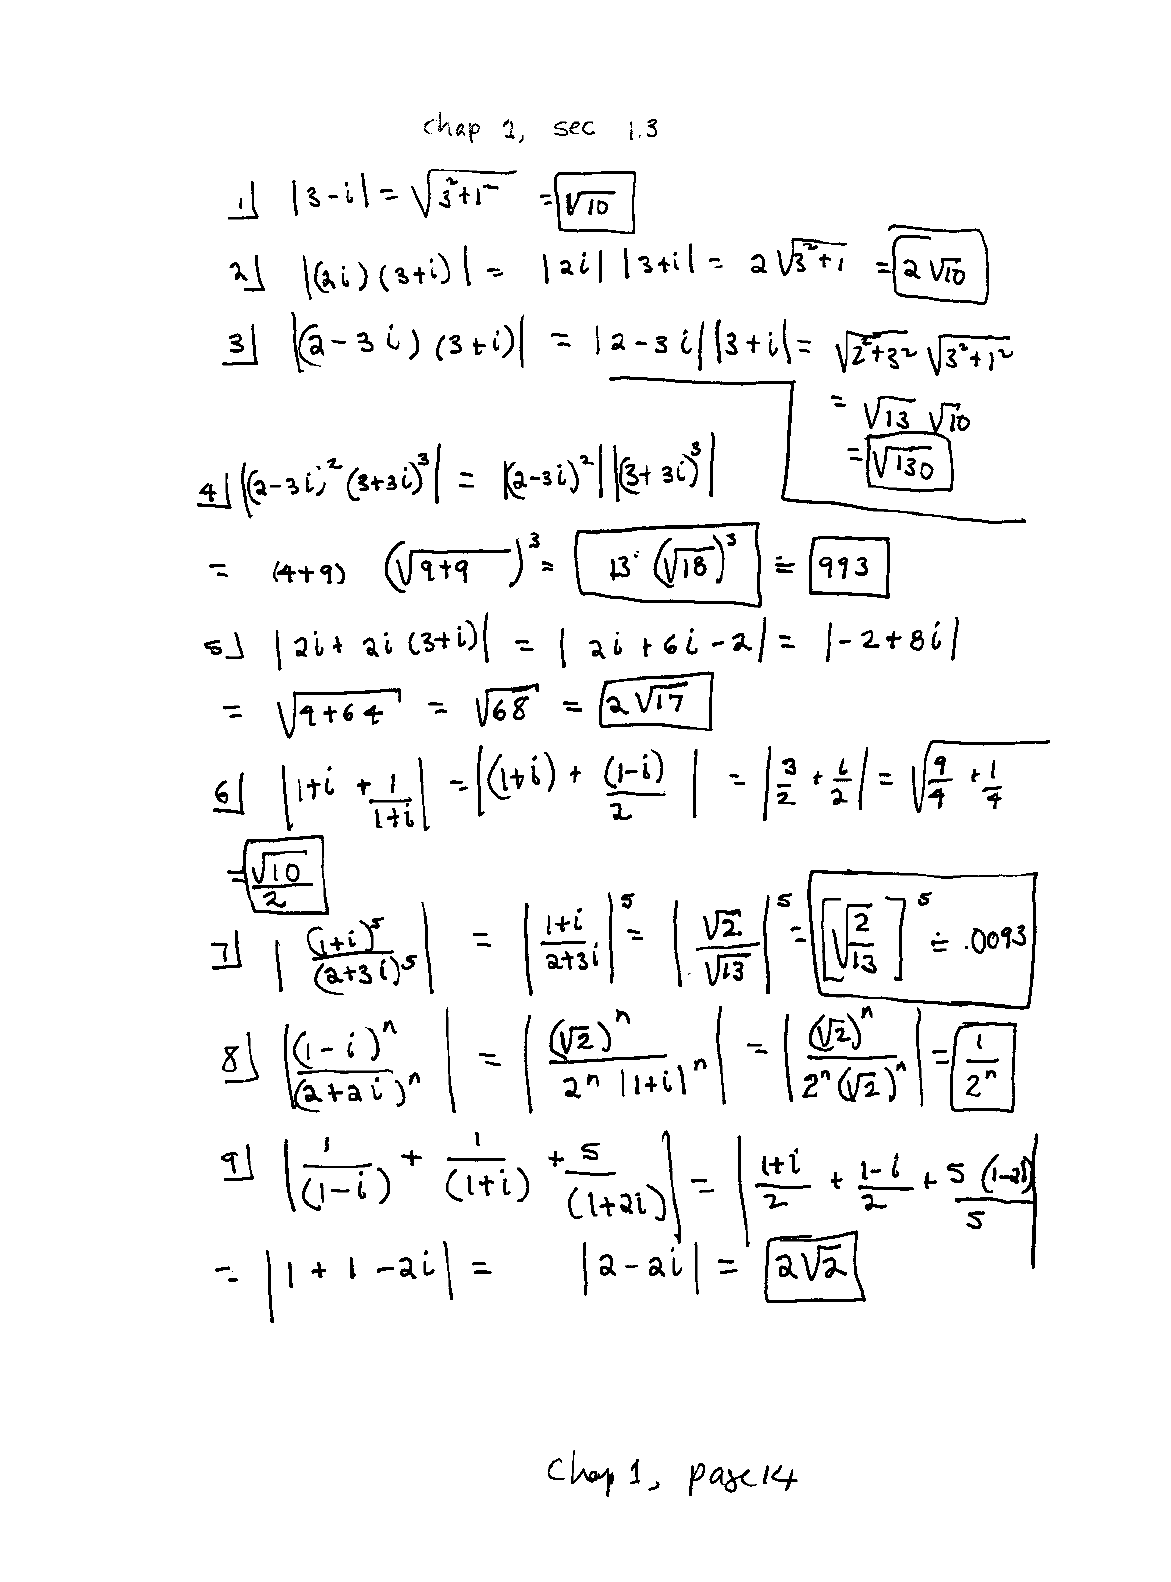 chap 1, sec 1.3
1] |3-i| = √(3²+1²) = √10
2] |(2i)(3+i)| = |2i| |3+i| = 2 √(3²+1) = 2√10
3] |(2-3i)(3+i)| = |2-3i| |3+i| = √(2²+3²) √(3²+1²)
= √13 √10
= √130
4] |(2-3i)² (3+3i)³| = |(2-3i)²| |(3+3i)³|
= (4+9) (√(9+9))³ = 13·(√18)³ ≐ 993
5] |2i + 2i(3+i)| = |2i+6i-2| = |-2+8i|
= √(9+64) = √68 = 2√17
6] |1+i + 1/(1+i)| = |(1+i) + (1-i)/2| = |3/2 + i/2| = √(9/4 + 1/4)
= √10/2
7] |(1+i)⁵/(2+3i)⁵| = |(1+i)/(2+3i)|⁵ = |√2/√13|⁵ = [√(2/13)]⁵ ≐ .0093
8] |(1-i)ⁿ/(2+2i)ⁿ| = |(√2)ⁿ/(2ⁿ |1+i|ⁿ)| = |(√2)ⁿ/(2ⁿ(√2)ⁿ)| = 1/2ⁿ
9] |1/(1-i) + 1/(1+i) + 5/(1+2i)| = |(1+i)/2 + (1-i)/2 + 5(1-2i)/5|
= |1+1-2i| = |2-2i| = 2√2
Chap 1, page 14